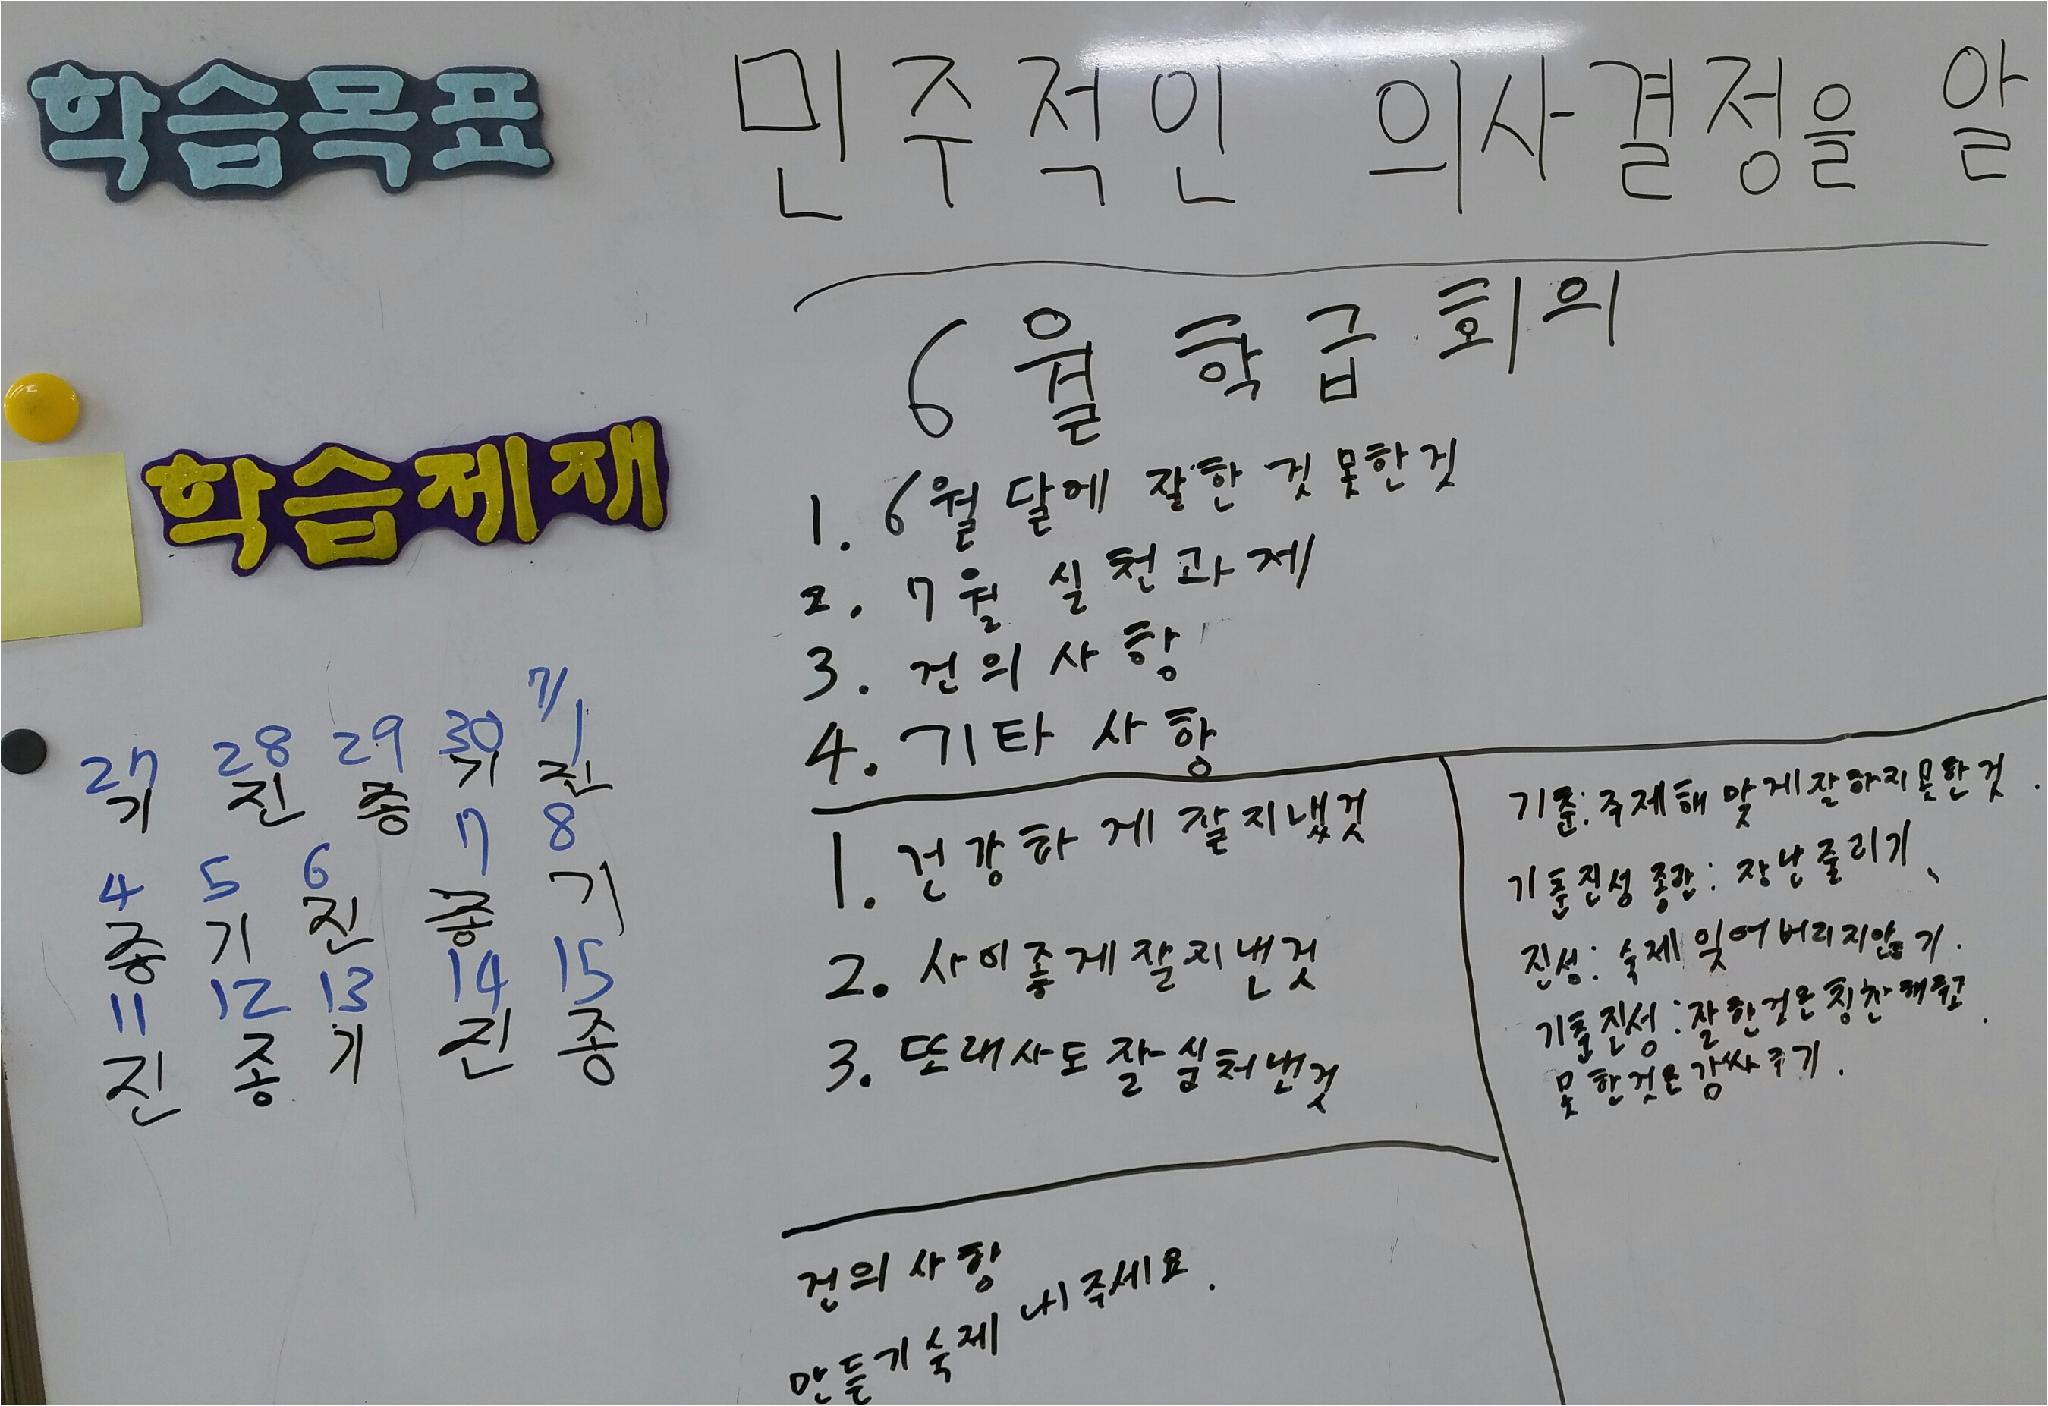 학습목표
민주적인 의사결정을 알
6월 학급회의
학습제재
1. 6월 달에 잘한 것 못한것
2. 7월 실천과제
3. 건의사항
4. 기타 사항
27 28 29 30 7/1
기 진 종 기 진
4 5 6 7 8
종 기 진 종 기
11 12 13 14 15
진 종 기 진 종
1. 건강하게 잘지냈것
2. 사이좋게 잘지낸것
3. 또래사도 잘
기준: 주제해 맞게잘하지못한것.
기준진성 종한: 장난줄리기
진성: 숙제 잊어버리지않기.
기준진성: 잘한것은칭찬해주고
못한것은감싸주기.
건의사항
만들기숙제 내주세요.